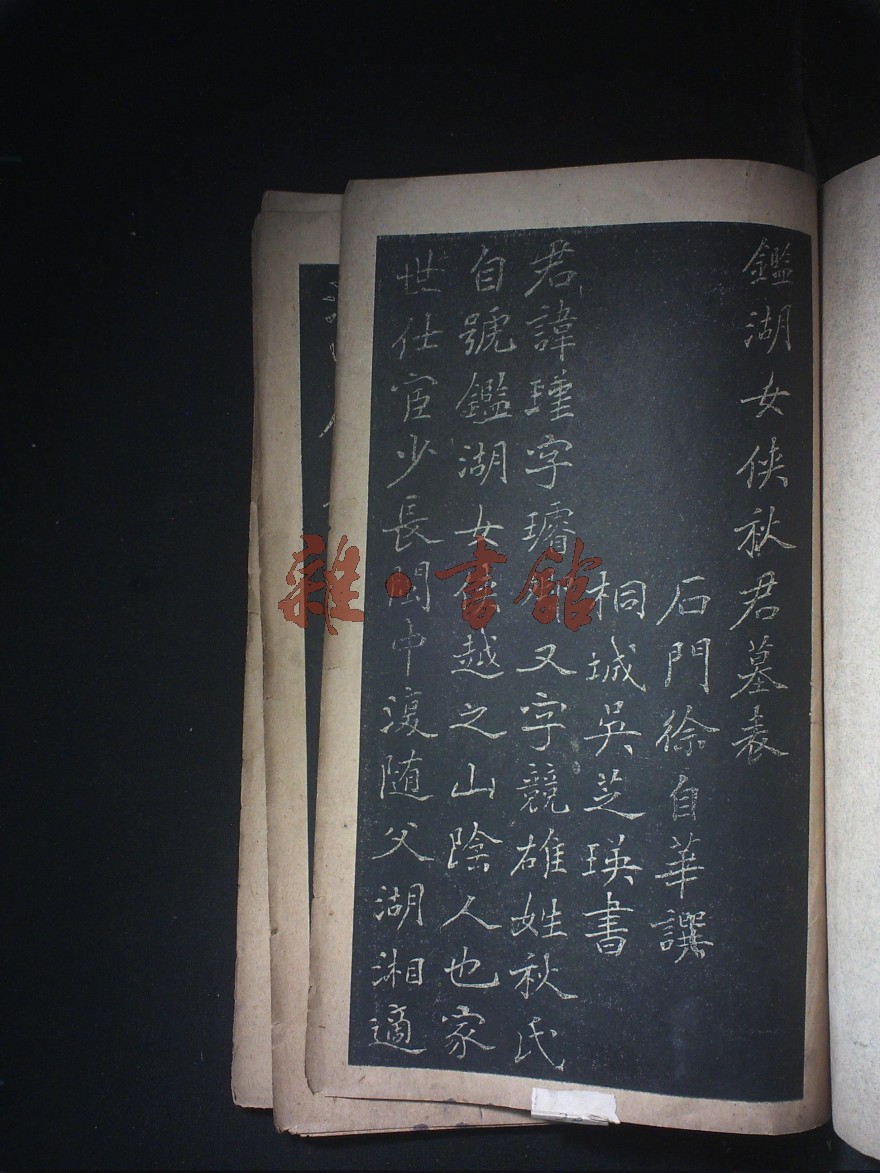 鑑湖女俠秋君墓表
石門徐自華譔
桐城吳芝瑛書
君諱瑾字璿卿又字競雄姓秋氏
自號鑑湖女俠越之山陰人也家
世仕宦少長閩中復隨父湖湘適
雜·書館